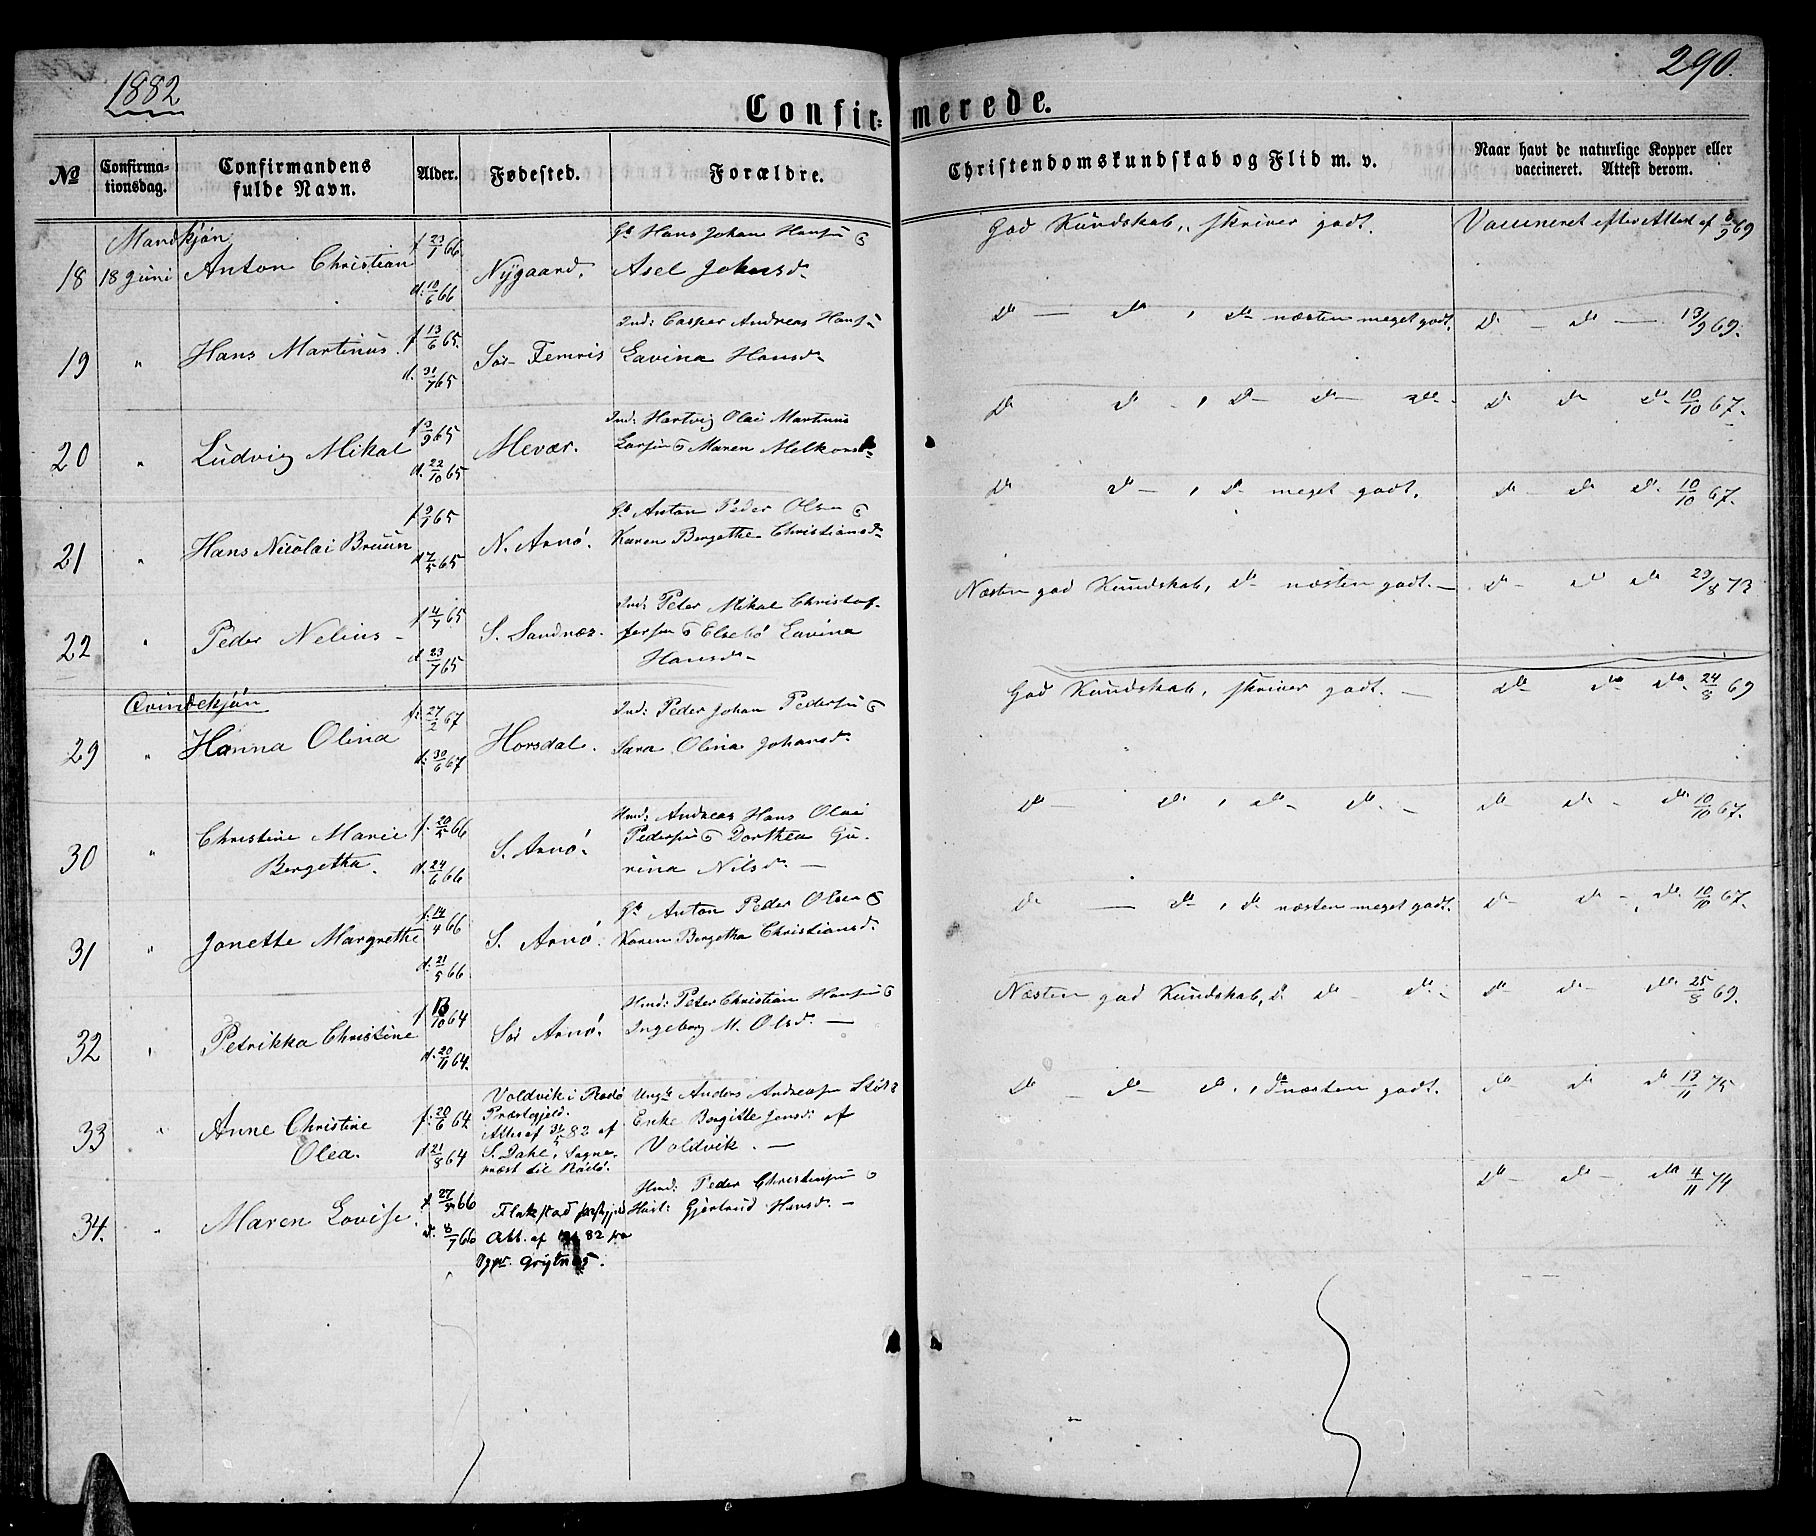 1882
290.
Confirmerede.
No
Confirmationsdag.
Confirmandens fulde Navn.
Alder.
Fødested.
Forældre.
Christendomskundskab og Flid m. v.
Naar havt de naturlige Kopper eller vaccineret. Attest derom.
Mandkjøn
18 18 Juni Anton Christian f 23/1 66 d: 10/6 66 Nygaard. Gb Hans Johan Hansen & Asel Johnsd. God Kundskab, skriver godt. Vaccineret efter Attest af 6/9 69
19 " Hans Martinus. f 13/6 65. d. 31/7 65 Sør Femris Ind: Casper Andreas Hans Lavina Hansd. do — do, do næsten meget godt. do — do — 13/9 69.
20 " Ludvig Mikal f 3/9 65 d. 22/10 65 Mevær. Ind: Hartvig Olai Martinus Larsen & Maren Melkorsd. do do, do do do do do do 10/10 67.
21 " Hans Nicolai Bruun f 9/1 65 d 7/5 65 N. Arnø. Gb Anton Peder Olsen & Karen Bergethe Christiansd. do do, do meget godt. do do do 10/10 67.
22 " Peder Nelius f 4/7 65 d 23/7 65 S. Sandnæs. Ind: Peter Mikal Christoffersen & Elsebe Lavina Hansd. Næsten god Kundskab, do næsten godt. do do do 29/8 73
Qvindekjøn
29 " Hanna Olina f: 27/2 67 d: 30/6 67 Horsdal. Ind: Peder Johan Pedersen & Sara Olina Johansd. God Kundskab, skriver godt. do do do 24/8 69
30 " Christine Marie Bergetha. f. 20/5 66 d. 24/6 66 S. Arnø. Hmd: Andreas Hans Olai Pedersen & Dorthea Gurina Nilsd. do do, do do do do do 10/10 67.
31 " Jonette Margrethe f. 14/4 66 d: 21/5 66 S. Arnø. Gb Anton Peder Olsen & Karen Bergetha Christiansd. do — do, do næsten meget godt. do do do 10/10 67.
32 " Petrikka Christine f 13/10 64 d. 20/11 64. Sør Arnø. Hmd: Peter Christian Hansen & Ingeborg M. Olsd. Næsten god Kundskab, do do do do do do 25/8 69.
33 " Anne Christine Olea. f: 20/6 64 d 21/8 64 Voldvik i Rødø Præstegjeld. Att: af 31/5 82 af S. Dahl, Sognepræst til Rødø. Ungk Anders Andreasen Enke Birgitte Jensd: af Voldvik. do do do, do næsten godt. do do do 13/11 75
34. " Maren Lovise f 27/5 66 d. 8/7 66 Flakstad Præstegjeld Att. af 82 fra Hmd: Peder Christensen & Hust: Gjertrud Hansd. do do do 4/11 74